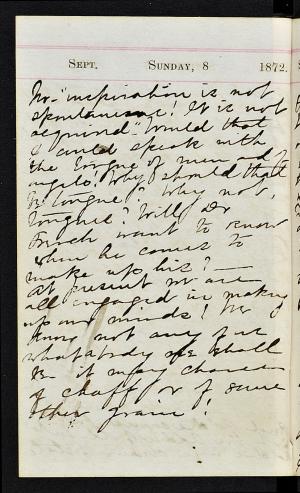 SEPT. SUNDAY, 8 1872.
No - "inspiration is not
spontaneous! It is not
acquired." Would that
I could speak with
the tongue of men and of
angels! Why should that
be tongue? Why not,
tongues? Will Dr
French want to know
when he comes to
make up his? —
At present we are
all engaged in making
up our minds! We
know not any sure
what body we shall
be it may chance
of chaff or of some
other grain!